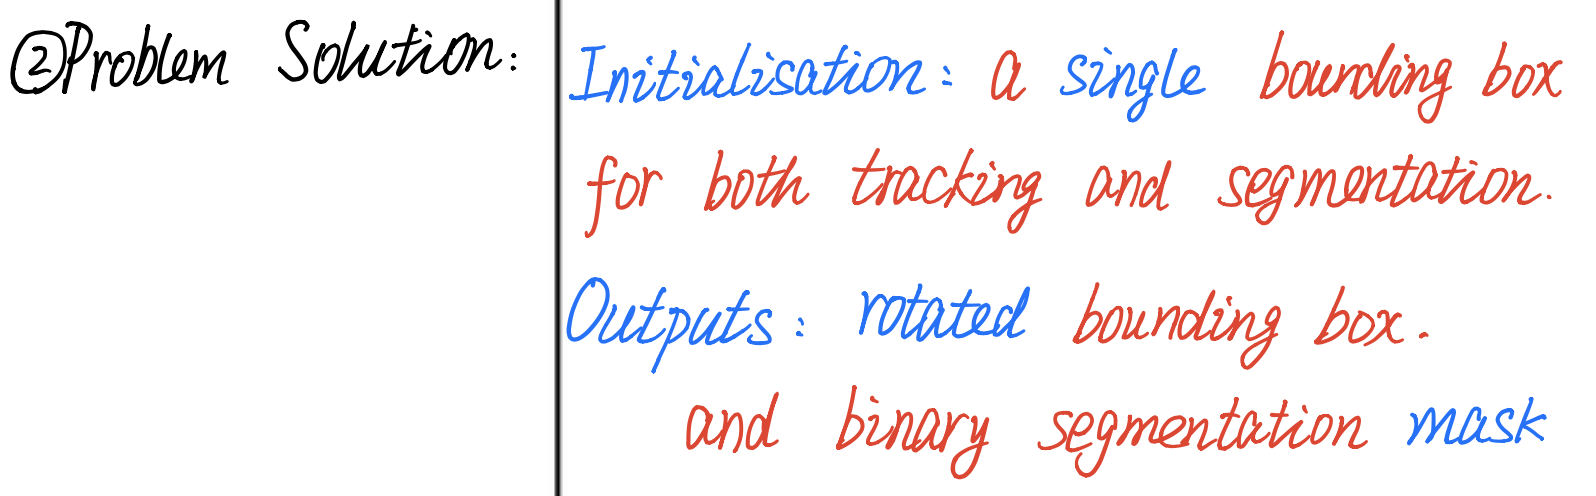 ②Problem Solution:
Initialisation: a single bounding box
for both tracking and segmentation.
Outputs: rotated bounding box.
and binary segmentation mask